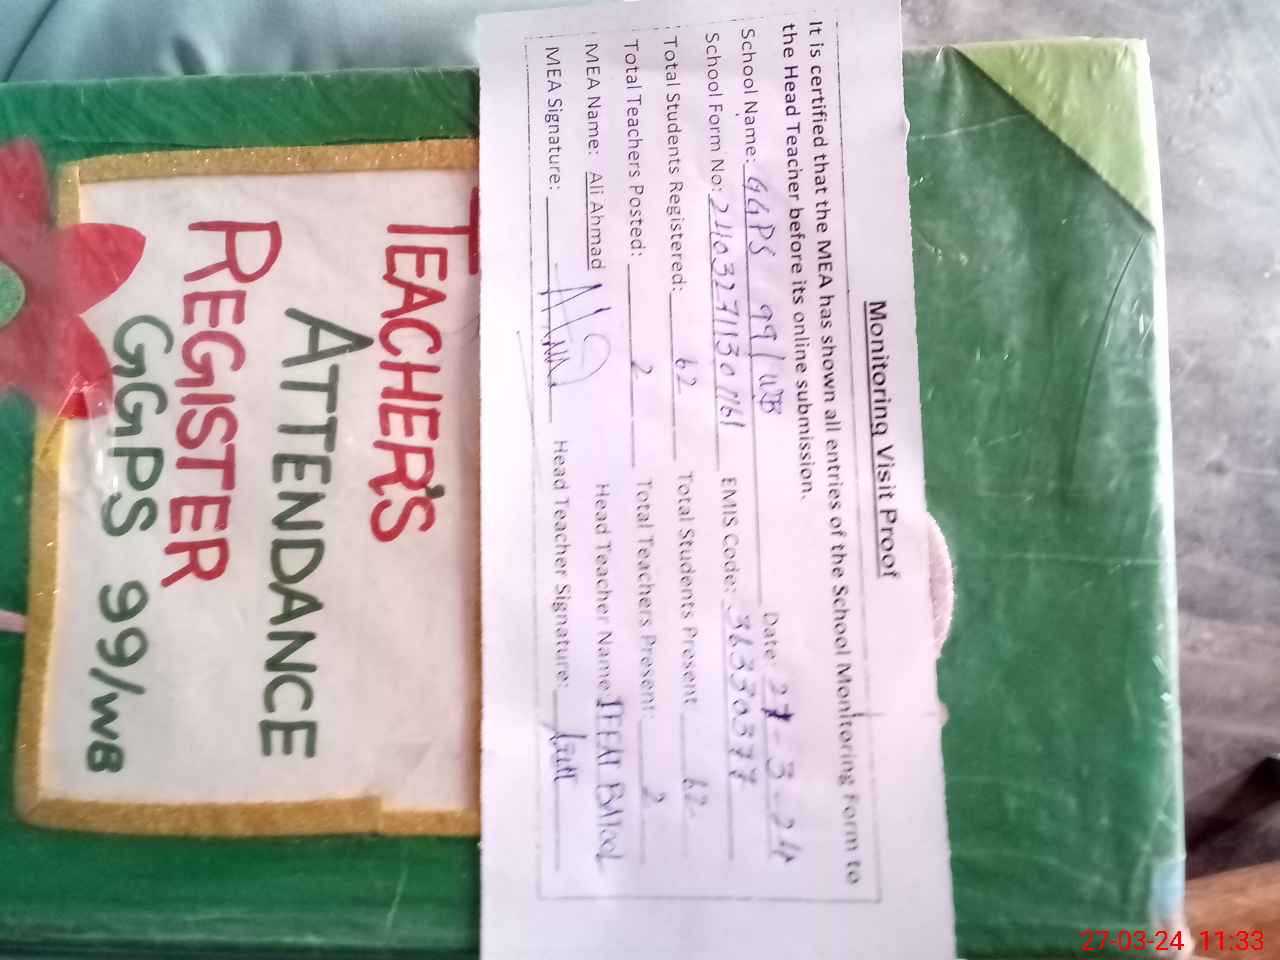 Monitoring Visit Proof
It is certified that the MEA has shown all entries of the School Monitoring Form to
the Head Teacher before its online submission.
School Name: GGPS 99/WB Date: 27-3-24
School Form No: EMIS Code: 36330377
Total Students Registered: 62 Total Students Present 62
Total Teachers Posted: 2 Total Teachers Present: 2
MEA Name: Ali Ahmad Head Teacher Name: IFFAT BATOOL
MEA Signature: Head Teacher Signature:
TEACHER'S
ATTENDANCE
REGISTER
GGPS 99/WB
27-03-24 11:33